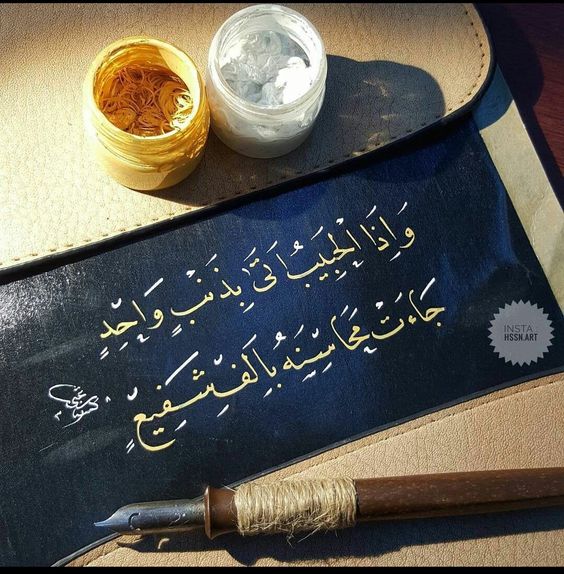 وَإِذَا الْحَبِيبُ أَتَىٰ بِذَنْبٍ وَاحِدٍ
جَاءَتْ مَحَاسِنُهُ بِأَلْفِ شَفِيعٍ
INSTA :
HSSN.ART